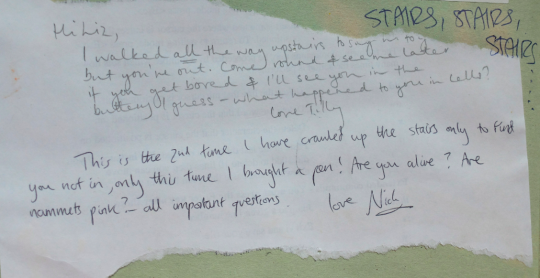 Hi Liz,
STAIRS, STAIRS,
STAIRS.....
I walked all the way upstairs to say hi to you
but you're out. Come round & see me later
if you get bored & I'll see you in the
buttery I guess - what happened to you in cells?
Love Tilly
This is the 2nd time I have crawled up the stairs only to find
you not in, only this time I brought a pen! Are you alive? Are
mammets pink? - all important questions. love Nick